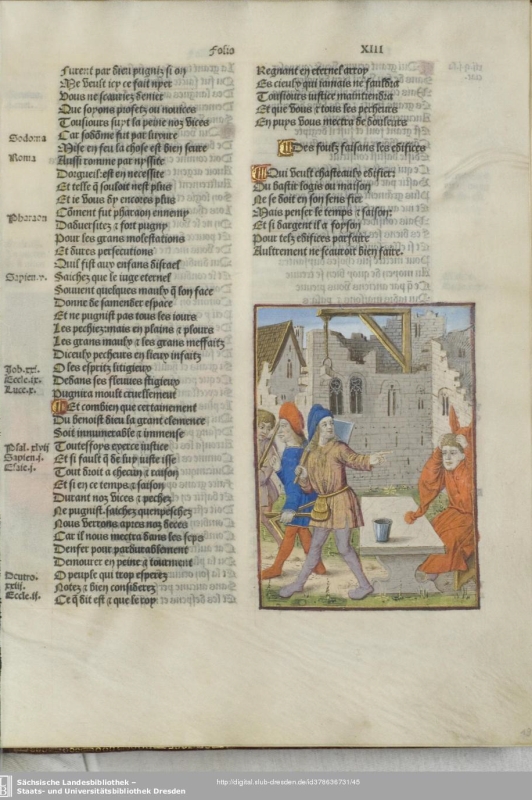 Folio XIII
Furent par bien pugniz si on
Me veult icy ce fait nyer
Vous ne scauriez denier
Que soyons profetz ou novices
Tousiours suyt la peine noz vices
Sodoma
Car sodome fut par luxure
Mise en feu la chose est bien seure
Roma
Aussi romme par nyssite
Dorgueil est en necessite
Et telle q̃ souloit nest plus
Et ie vous dy encores plus
Pharaon
Cõment fut pharaon ennemy
Daduersitez ⁊ fort pugny
Pour les grans molestations
Et dures persecutions
Quil fist aux enfans disrael
Sapien. v.
Saichez que le iuge eternel
Souuent quelques maulx q̃ lon face
Donne de samender espace
Et ne pugnist pas tous les iours
Les pechiez: mais en plains ⁊ plours
Les grans maulx ⁊ les grans meffaitz
Job. xxi.
Diceulx pecheurs en lieux infaitz
Eccle. ix.
O les espritz litigieux
Luce. x.
Dedans ses fleuues stigieux
Pugnira moult cruellement
Et combien que certainement
Du benoist dieu la grant clemence
Soit innumerable ⁊ immense
Psal. xlvii
Toutesfoys exerce iustice
Sapien. i.
Et si fault q̃ de luy iuste isse
Esaie. i.
Tout droit a checun ⁊ raison
Et si en ce temps ⁊ saison
Durant noz vices ⁊ pechez
Ne pugnist. saichez quempeschez
Nous verrons apres noz deces
Car il nous mectra dans les seps
Denfer pour pardurablement
Demourer en peine ⁊ tourment
Deutro.
O peuple qui trop esperez
xxxii.
Notez ⁊ bien considerez
Eccle. ii.
Ce q̃ dit est ⁊ que le roy
Regnant en eternel arroy
Es cieulx qui iamais ne fauldra
Tousiours iustice maintiendra
Et que vous ⁊ tous les pecheurs
En puys vous mectra de douleurs
Des folz faisans les edifices
Qui veult chasteaulx edifier:
Ou bastir logis ou maison
Ne se doit en son sens fier
Mais penser le temps ⁊ saison:
Et si dargent il a foyson
Pour telz edifices parfaire
Aultrement ne scauroit bien faire.
Sächsische Landesbibliothek –
Staats- und Universitätsbibliothek Dresden
http://digital.slub-dresden.de/id378636731/45